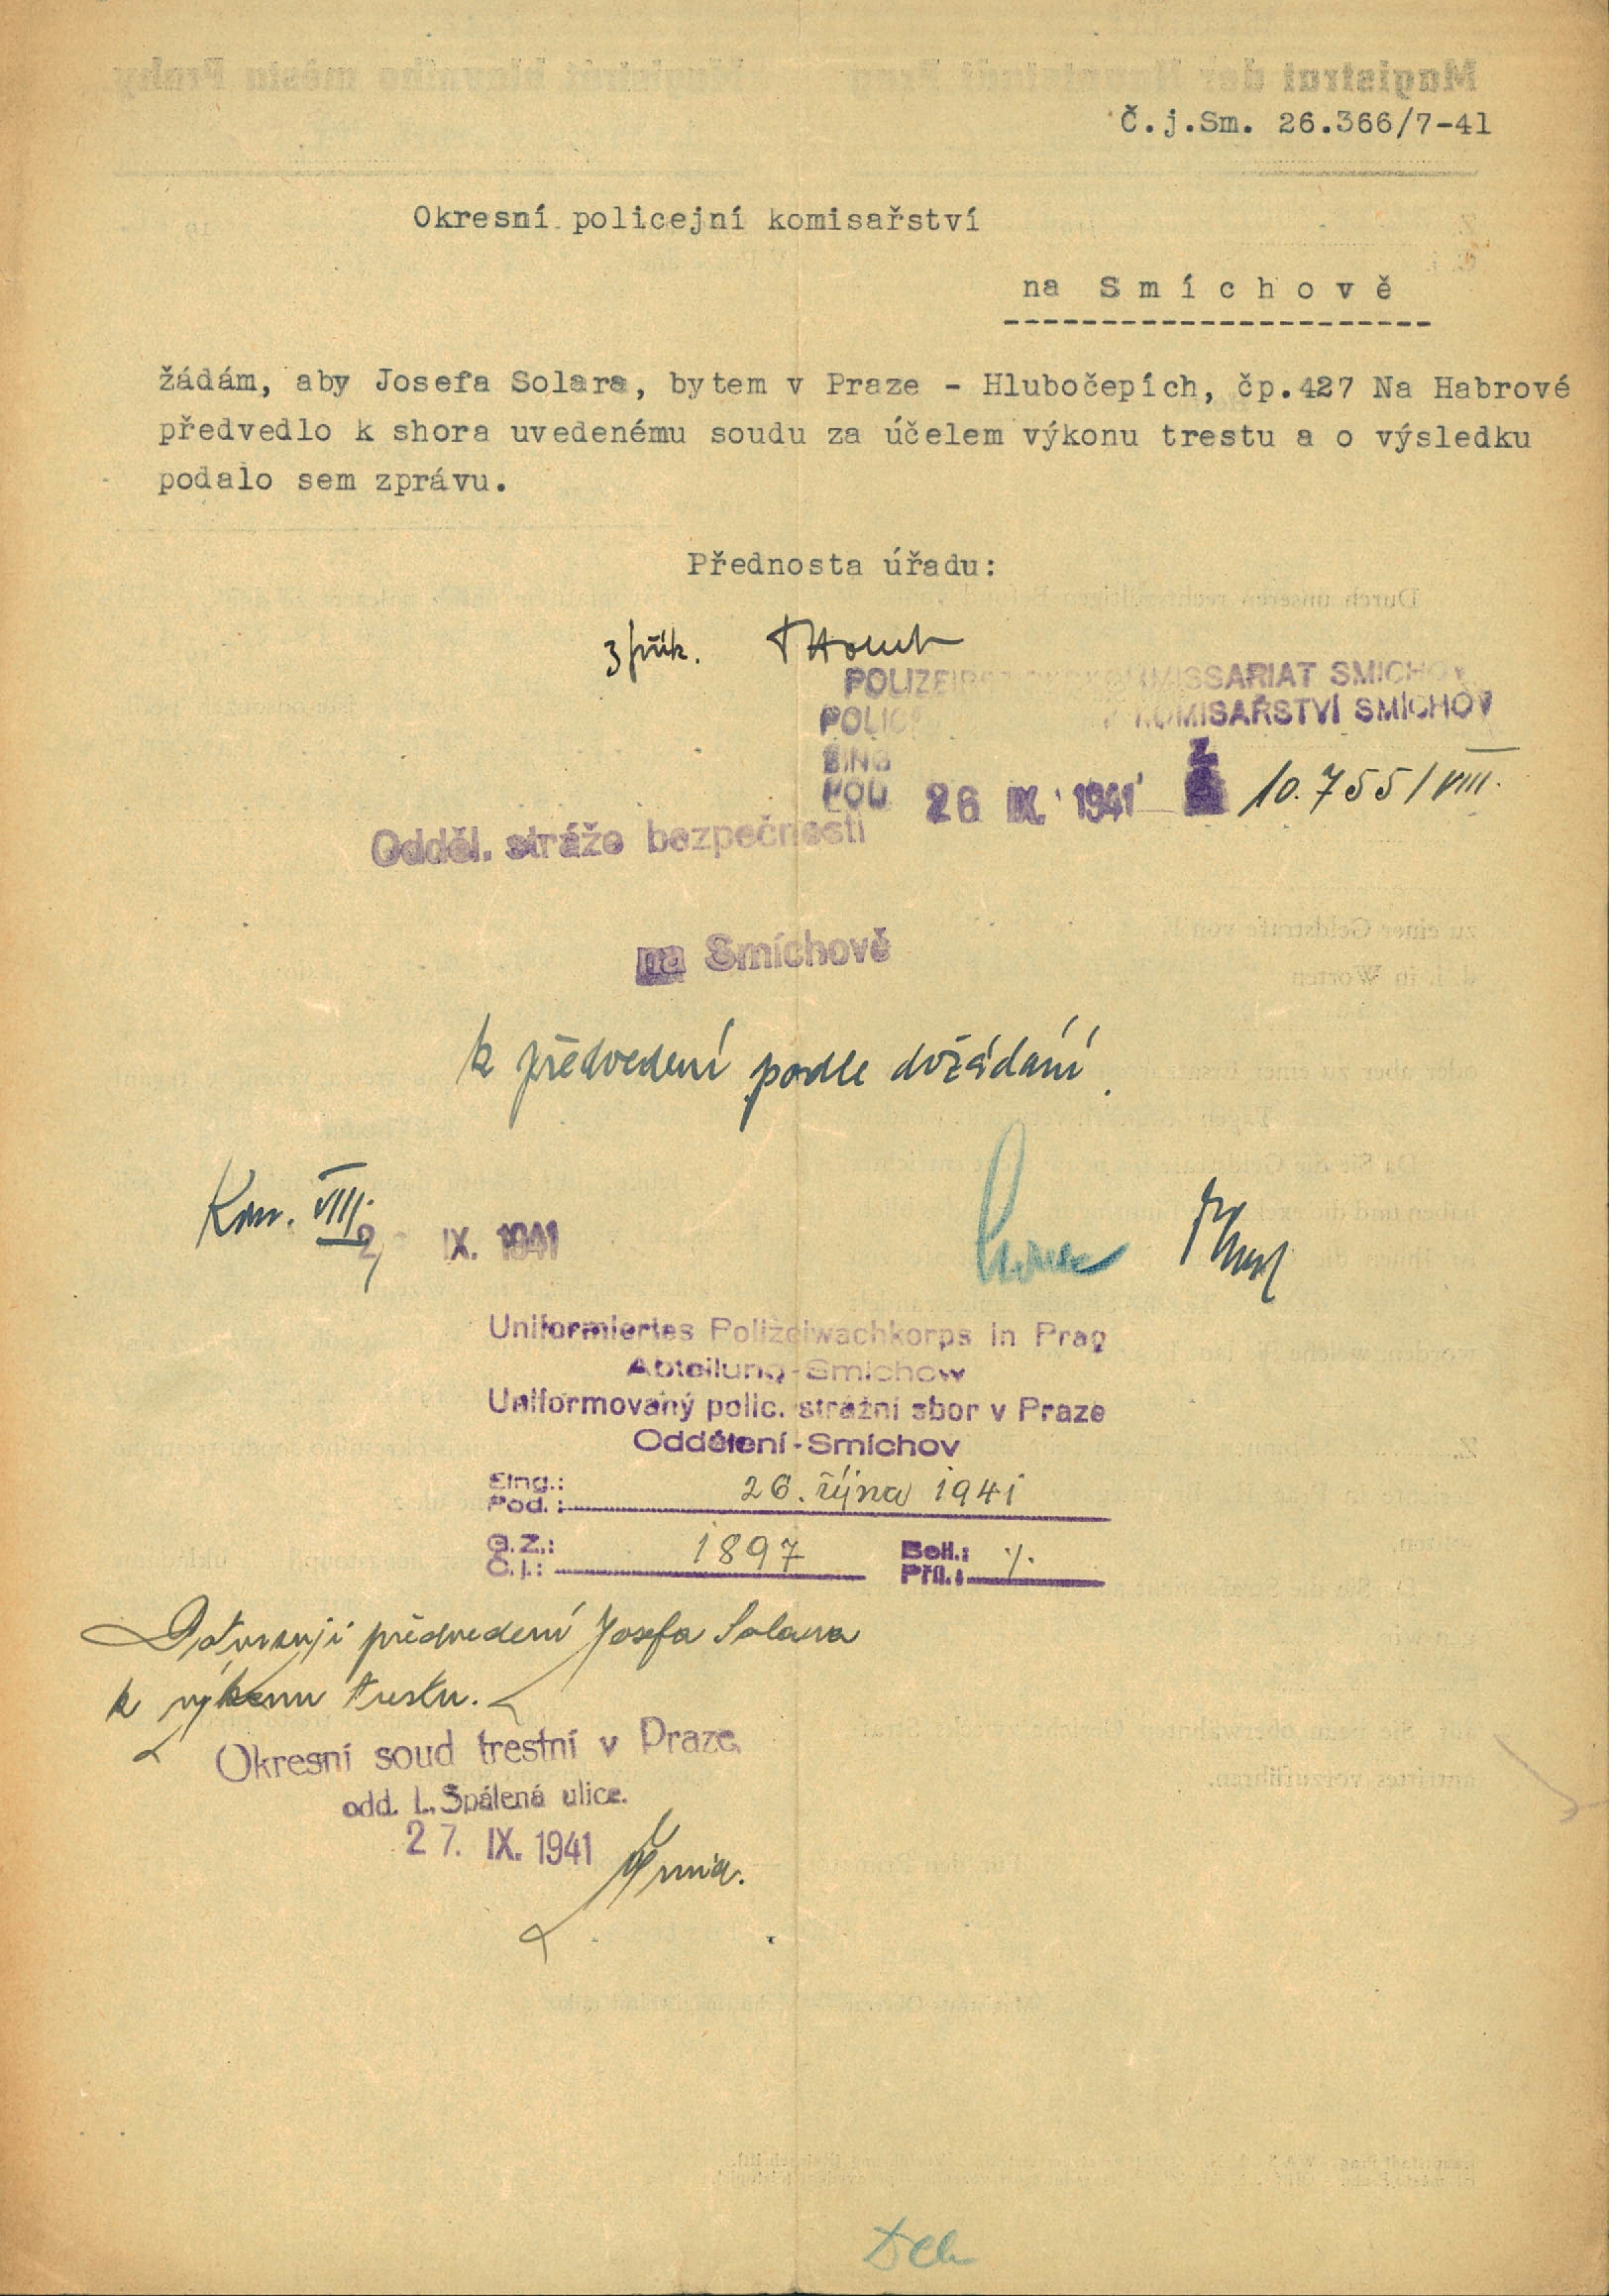 Č.j.Sm. 26.366/7-41
Okresní policejní komisařství
na Smíchově
žádám, aby Josefa Solara, bytem v Praze - Hlubočepích, čp.427 Na Habrové
předvedlo k shora uvedenému soudu za účelem výkonu trestu a o výsledku
podalo sem zprávu.
Přednosta úřadu:
z přík.
KOMMISSARIAT SMICHOV
KOMISAŘSTVÍ SMÍCHOV
26 IX. 1941 10.755/VIII.
Odděl. stráže bezpečnosti
na Smíchově
k předvedení podle dožádání.
Kom. VIII.
IX. 1941
Uniformiertes Polizeiwachkorps in Prag
Abteilung-Smichow
Uniformovaný polic. strážní sbor v Praze
Oddělení-Smíchov
Eing.:
Pod.: 26. října 1941
G.Z.:
Č.j.: 1897
Beil.:
Příl.: ./.
Potvrzuji předvedení Josefa Solara
k výkonu trestu.
Okresní soud trestní v Praze,
odd. I., Spálená ulice.
27. IX. 1941